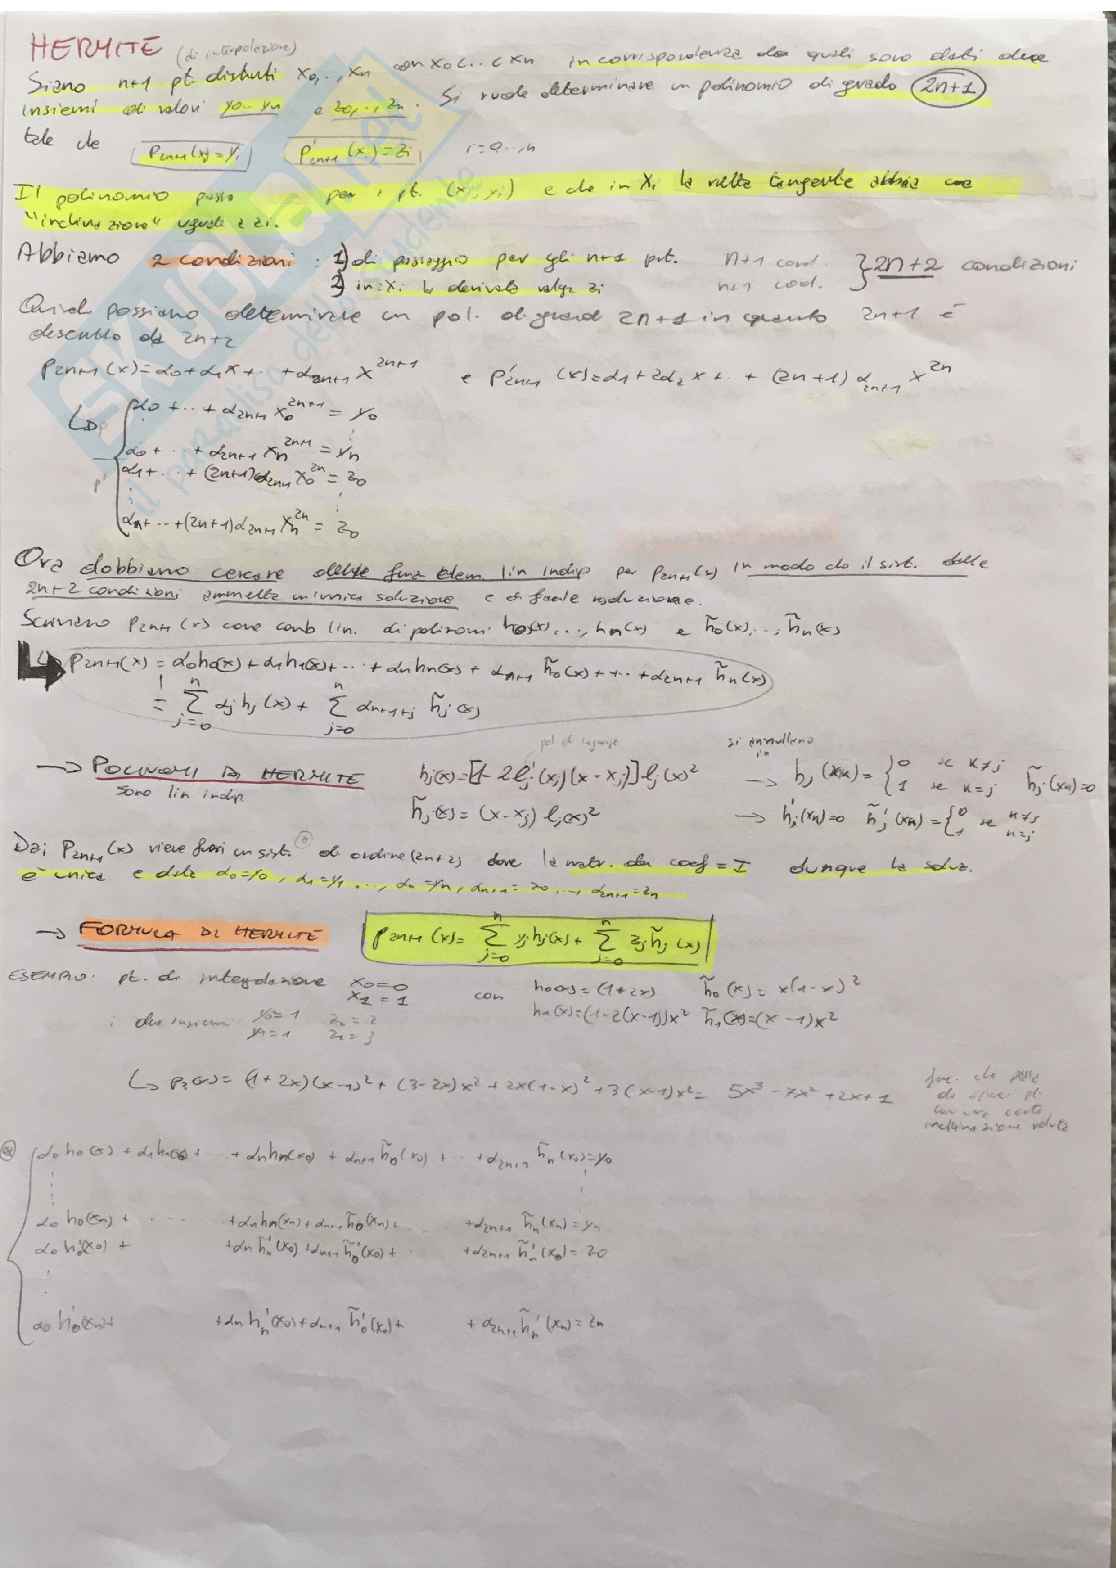 HERMITE (di interpolazione)
Siano n+1 pt. distinti x0,..,xn con x0<..<xn in corrispondenza dei quali sono dati due
insiemi di valori y0..yn e z0,..,zn. Si vuole determinare un polinomio di grado 2n+1
tale che P2n+1(xi)=yi P'2n+1(xi)=zi i=0..,n
Il polinomio passa per i pt. (xi,yi) e che in xi la retta tangente abbia una
"inclinazione" uguale a zi.
Abbiamo 2 condizioni: 1) di passaggio per gli n+1 pt. n+1 cond. } 2n+2 condizioni
2) in xi la derivata valga zi n+1 cond.
Quindi possiamo determinare un pol. di grado 2n+1 in quanto 2n+1 è
descritto da 2n+2
P2n+1(x)=α0+α1x+..+α2n+1 x^2n+1 e P'2n+1(x)=α1+2α2x+..+(2n+1)α2n+1 x^2n
↳ { α0+..+α2n+1 x0^2n+1 = y0
α0+..+α2n+1 xn^2n+1 = yn
p' α1+..+(2n+1)α2n+1 x0^2n = z0
αn+..+(2n+1)α2n+1 xn^2n = z0
Ora dobbiamo cercare delle funz elem. lin indip per P2n+1(x) in modo che il sist. delle
2n+2 condizioni ammetta un'unica soluzione e di facile risoluzione.
Scriviamo P2n+1(x) come comb lin. di polinomi h0(x),...,hn(x) e h̃0(x),..,h̃n(x)
↳ P2n+1(x) = α0h0(x)+α1h1(x)+...+αnhn(x)+αn+1 h̃0(x)+...+α2n+1 h̃n(x)
= Σ(j=0..n) αj hj(x) + Σ(j=0..n) αn+1+j h̃j(x)
pol di lagrange si annullano in
→ POLINOMI DI HERMITE hj(x)=[1-2l'j(xj)(x-xj)]lj(x)² → hj(xk)={0 se k≠j 1 se k=j h̃j(xk)=0
sono lin indip. h̃j(x)=(x-xj)lj(x)² → h'j(xk)=0 h̃'j(xk)={0 1 se k≠j k=j
Da P2n+1(x) viene fuori un sist. ⊛ di ordine (2n+2) dove la matr. dei coef = I dunque la soluz.
è unica e data α0=y0, α1=y1 ..., αn=yn, αn+1=z0 ..., α2n+1=zn
→ FORMULA DI HERMITE P2n+1(x)= Σ(j=0..n) yj hj(x)+ Σ(j=0..n) zj h̃j(x)
ESEMPIO: pt. di interpolazione x0=0 x1=1 con h0(x)=(1+2x) h̃0(x)=x(1-x)²
i due insiemi y0=1 y1=1 z0=2 z1=3 h1(x)=(1-2(x-1))x² h̃1(x)=(x-1)x²
↳ P3(x)=(1+2x)(x-1)²+(3-2x)x²+2x(1-x)²+3(x-1)x²= 5x³-7x²+2x+1
inclinazione voluta
⊛ { α0h0(x)+α1h1(x)+..+αnhn(x0)+αn+1h̃0(x0)+..+α2n+1h̃n(x0)=y0
α0h0(xn)+.....+αnhn(xn)+αn+1h̃0(xn)+..+α2n+1h̃n(xn)=yn
α0h'0(x0)+ +αnh'n(x0)+αn+1h̃'0(x0)+..+α2n+1h̃'n(x0)=z0
α0h'0(xn)+ +αnh'n(x0)+αn+1h̃'0(x0)+ +α2n+1h̃'n(xn)=zn